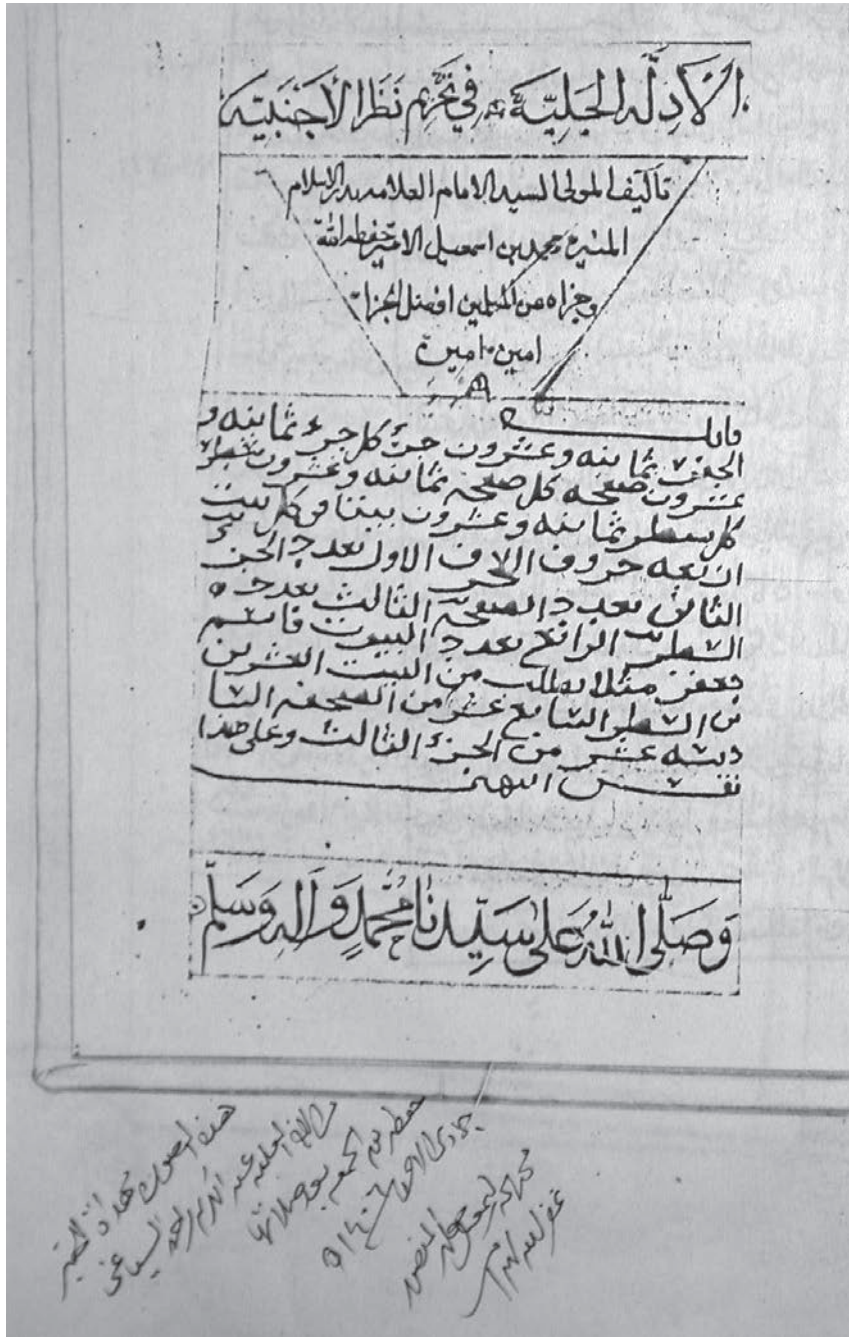 الأَدِلَّه الجَلِيَّه في تَحْرِيم نَظَر الأَجْنَبِيَّه
تأليف المولى السيد الامام العلامه بدر الاسلام
المنير محمد بن اسمعيل الامير حفظه الله
وجزاه عن المسلمين افضل الجزاء
امين امين
فايده
الجفر ثمانيه وعشرون جزء كل جزء ثمانيه و
عشرون صفحه كل صفحه ثمانيه وعشرون سطر
كل سطر ثمانيه وعشرون بيتا في كل بيت
اربعه حروف الحرف الاول بعدد الجز
الثاني بعدد الصفحه الثالث بعدد
السطر الرابع بعدد البيوت فاسم
جعفر مثلا يطلب من البيت العشرين
من السطر السابع عشر من الصفحه السا
دسه عشر من الجزء الثالث وعلى هذا
فقس
وَصَلَّى اللهُ عَلَى سَيِّدِنَا مُحَمَّدٍ وَآلِهِ وَسَلَّم
هذه المصوره
يوم الجمعه بعد صلاتها
غفر الله لهم